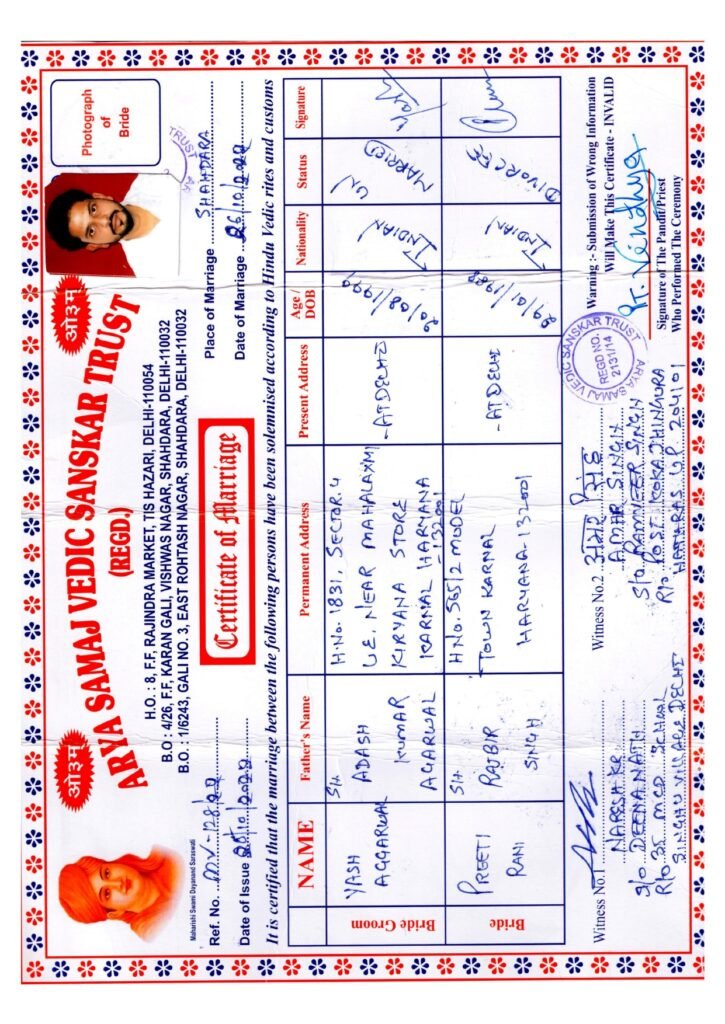 ओ३म्
ओ३म्
ARYA SAMAJ VEDIC SANSKAR TRUST
(REGD.)
H.O. : 8, F.F, RAJINDRA MARKET, TIS HAZARI, DELHI-110054
B.O : 4/26, F.F, KARAN GALI, VISHWAS NAGAR, SHAHDARA, DELHI-110032
B.O : 1/6243, GALI NO. 3, EAST ROHTASH NAGAR, SHAHDARA, DELHI-110032
Maharishi Swami Dayanand Saraswati
Photograph
of
Bride
TRUST
Ref. No.
Date of Issue
Certificate of Marriage
Place of Marriage SHAHDARA
Date of Marriage
It is certified that the marriage between the following persons have been solemnised according to Hindu Vedic rites and customs
NAME Father's Name Permanent Address Present Address Age / DOB Nationality Status Signature
Bride Groom
YASH
AGGARWAL
SH.
ADASH
KUMAR
AGARWAL
H.No. 1831, SECTOR.4
U.E. NEAR MAHALAXMI
KIRYANA STORE
KARNAL HARYANA
-132001
-AT DELHI
20/08/1990
INDIAN
UN
MARRIED
Bride
PREETI
RANI
SH.
RAJBIR
SINGH
H NO. 565/2 MODEL
TOWN KARNAL
HARYANA-132001
-AT DELHI
29/01/1988
INDIAN
DIVORCEE
Witness No.1
NARESH KR.
S/O DEENA NATH
R/O 35 MCD SCHOOL
SINGHU VILLAGE DELHI
Witness No.2 अमर सिंह
AMAR SINGH
S/O RAMVEER SINGH
R/O POST KOKA JHINMURA
HATHRAS UP 204101
ARYA SAMAJ VEDIC SANSKAR TRUST
REGD NO.
2131/14
Warning :- Submission of Wrong Information
Will Make This Certificate - INVALID
Signature of The Pandit/Priest
Who Performed The Ceremony